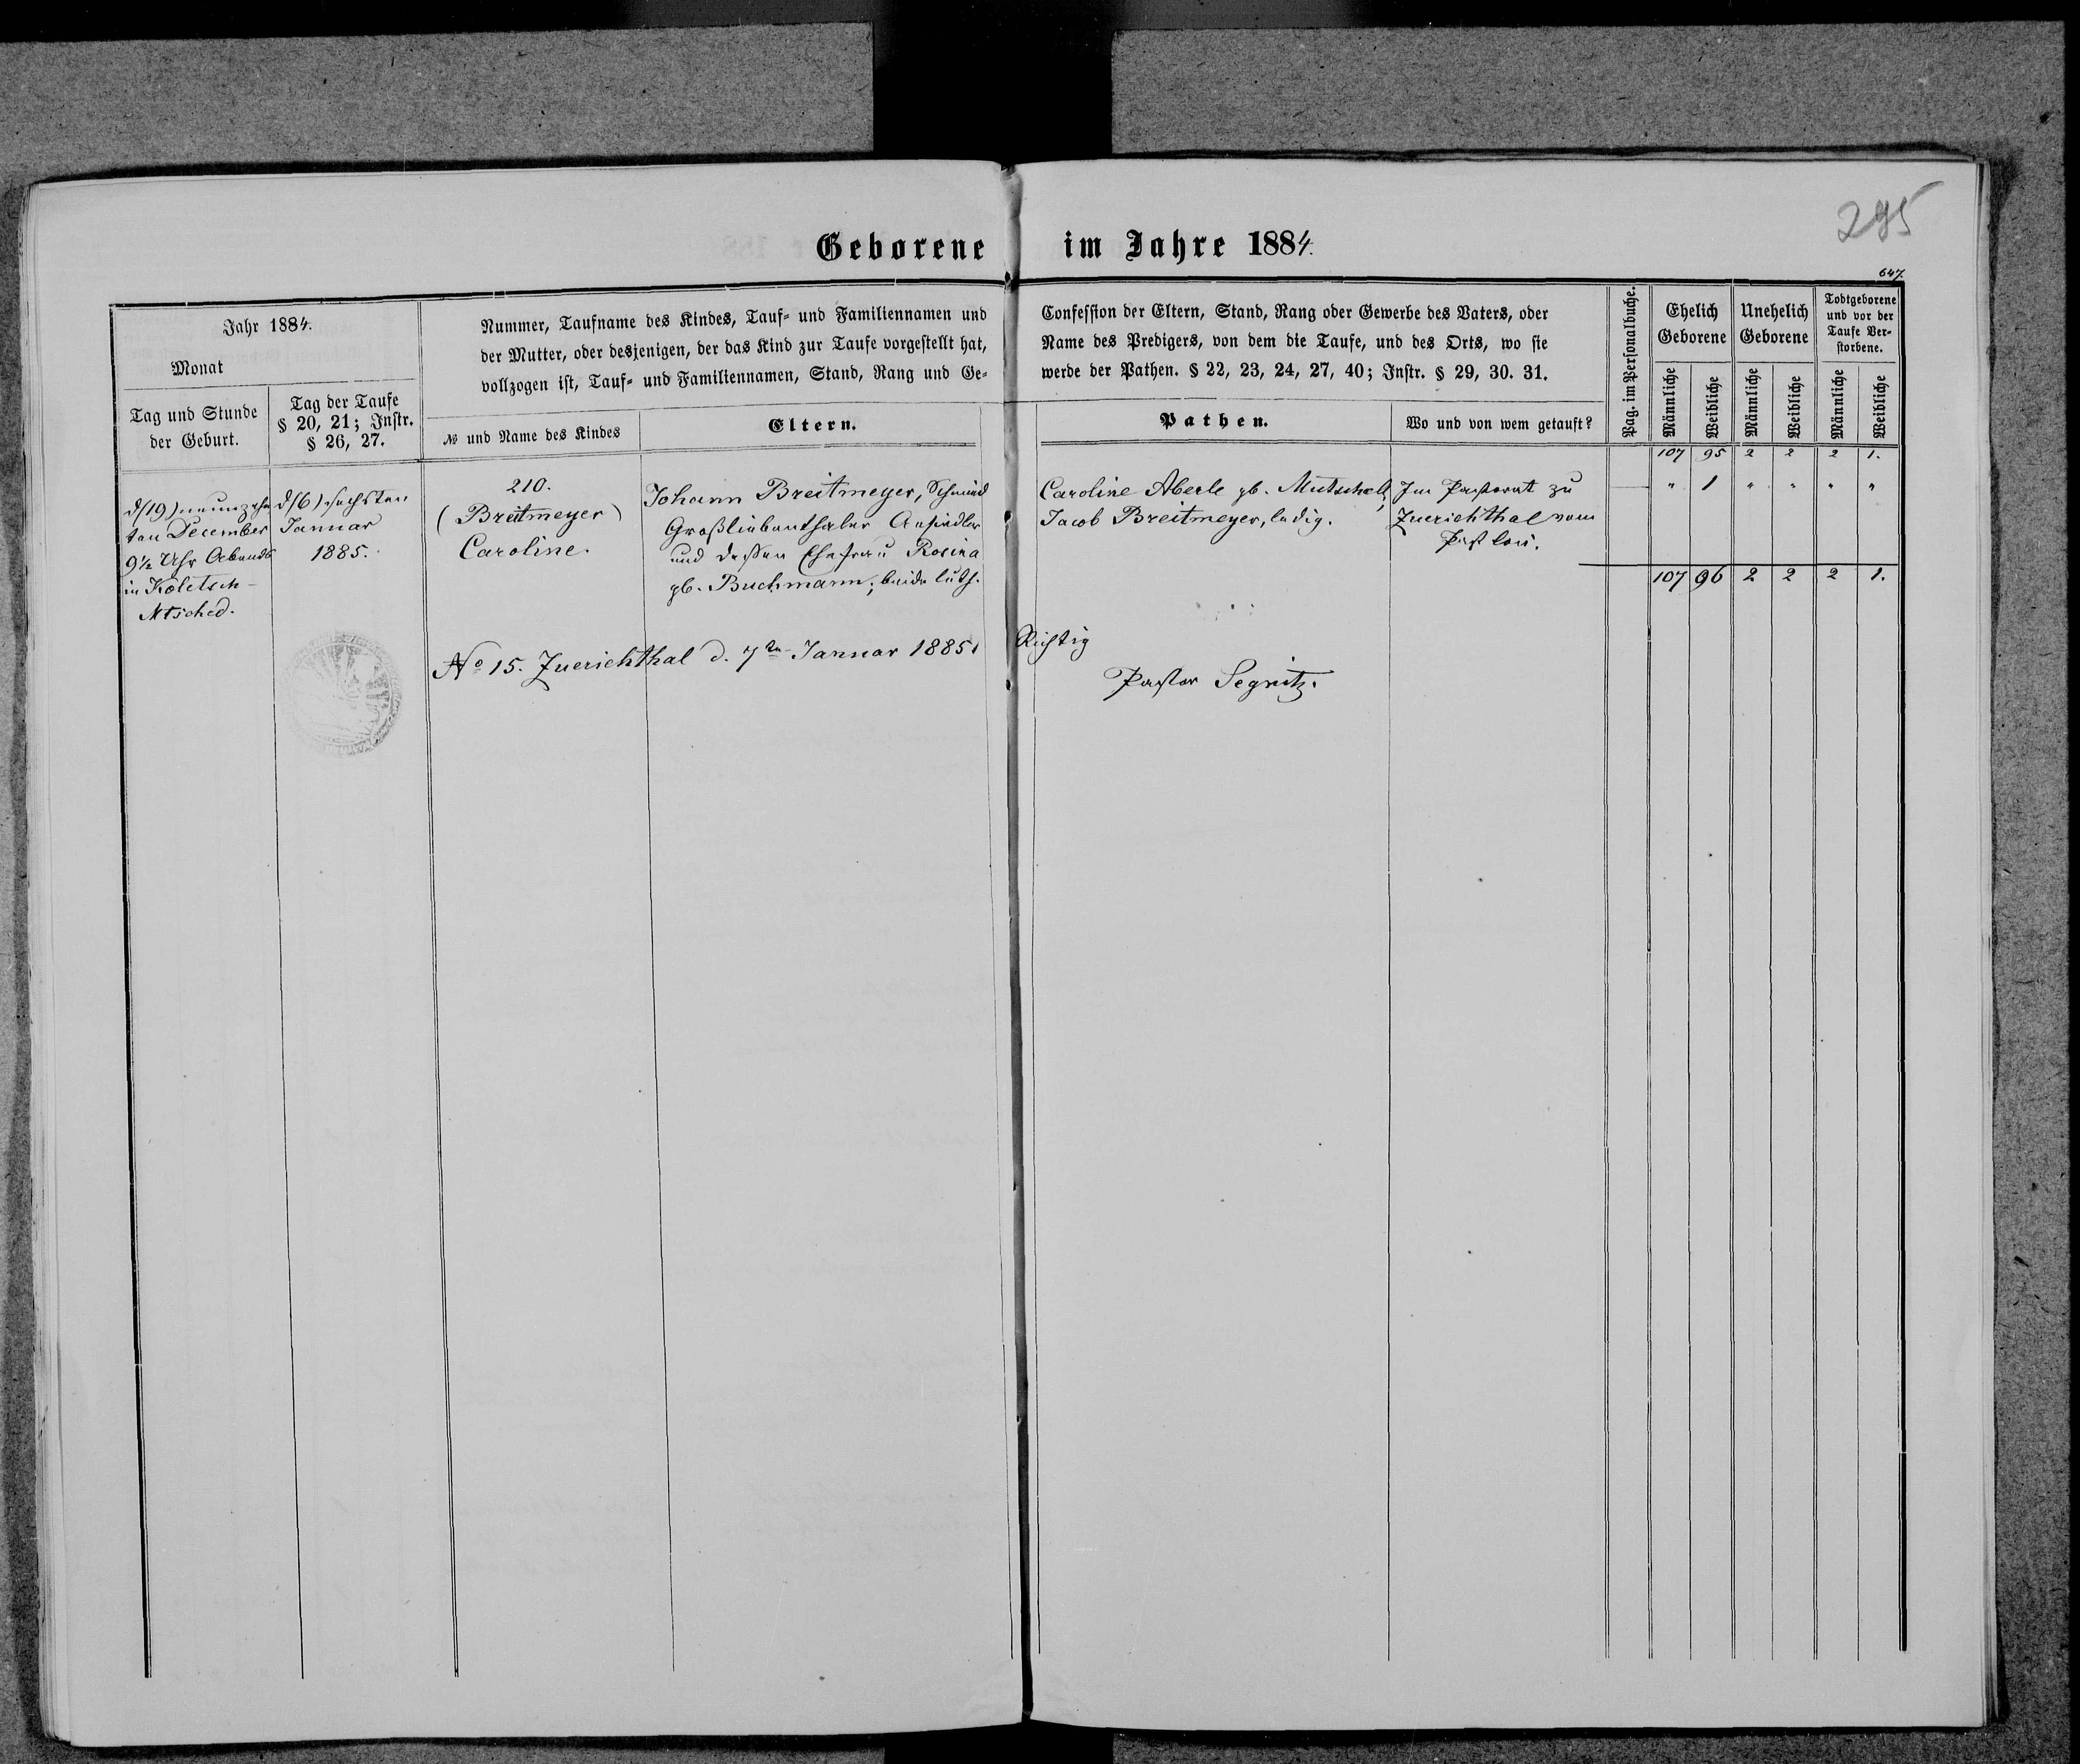 295
Geborene im Jahre 1884.
647.
Jahr 1884.
Monat
Tag und Stunde
der Geburt.
Tag der Taufe
§ 20, 21; Instr.
§ 26, 27.
Nummer, Taufname des Kindes, Tauf- und Familiennamen und
der Mutter, oder desjenigen, der das Kind zur Taufe vorgestellt hat,
vollzogen ist, Tauf- und Familiennamen, Stand, Rang und Ge-
№ und Name des Kindes
Eltern.
Confession der Eltern, Stand, Rang oder Gewerbe des Vaters, oder
Name des Predigers, von dem die Taufe, und des Orts, wo sie
werbe der Pathen. § 22, 23, 24, 27, 40; Instr. § 29, 30. 31.
Pathen.
Wo und von wem getauft?
Pag. im Personalbuche.
Ehelich
Geborene
Unehelich
Geborene
Todtgeborene
und vor der
Taufe Ver-
storbene.
Männliche
Weibliche
Männliche
Weibliche
Männliche
Weibliche
107 95 2 2 2 1.
d/(19) neunzehn
ten December
9½ Uhr Abends
in Koletsch-
Mtsched.
d/(6) sechsten
Januar
1885.
210.
(Breitmeyer)
Caroline.
Johann Breitmeyer, Schmied
Großliebenthaler Ansiedler
und dessen Ehefrau Rosina
gb. Buchmann; beide luth.
Caroline Aberle gb. Mutschell,
Jacob Breitmeyer, ledig.
Im Pastorat zu
Zuerichthal vom
Past. loci.
" 1 " " " "
107 96 2 2 2 1.
No 15. Zuerichthal d. 7ten Januar 1885.
Richtig
Pastor Segnitz.